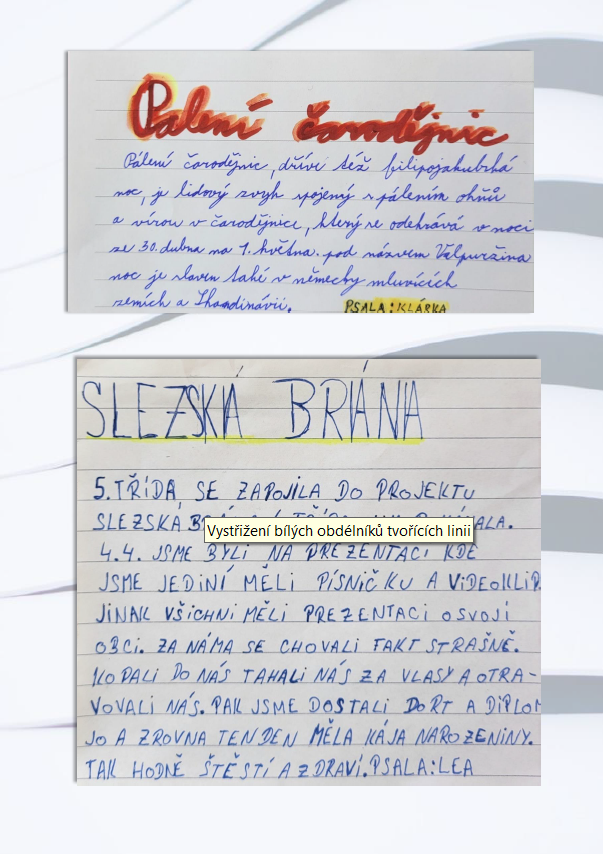 Pálení čarodějnic
Pálení čarodějnic, dříve též filipojakubská
noc, je lidový zvyk spojený s pálením ohňů
a vírou v čarodějnice, který se odehrává v noci
ze 30. dubna na 1. května. pod názvem Valpuržina
noc je slaven také v německy mluvících
zemích a Skandinávii.
PSALA: KLÁRKA
SLEZSKÁ BRÁNA
5. TŘÍDA SE ZAPOJILA DO PROJEKTU
SLEZSKÁ
Vystřižení bílých obdélníků tvořících linii
4.4. JSME BYLI NA PREZENTACI KDE
JSME JEDINÍ MĚLI PÍSNIČKU A VIDEOKLIP.
JINAK VŠICHNI MĚLI PREZENTACI O SVOJÍ
OBCI. ZA NÁMA SE CHOVALI FAKT STRAŠNĚ.
KOPALI DO NÁS TAHALI NÁS ZA VLASY A OTRA-
VOVALI NÁS. PAK JSME DOSTALI DORT A DIPLOM
JO A ZROVNA TEN DEN MĚLA KÁJA NAROZENINY.
TAK HODNĚ ŠTĚSTÍ A ZDRAVÍ. PSALA: LEA